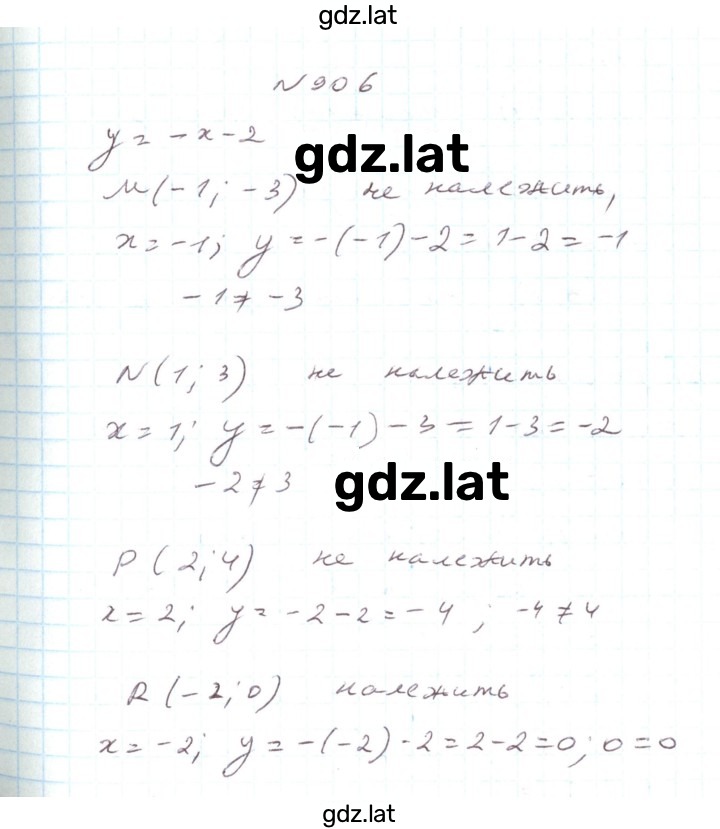 gdz.lat
№906
y = -x-2
gdz.lat
M(-1; -3) не належить,
x = -1; y = -(-1)-2 = 1-2 = -1
-1 ≠ -3
N(1; 3) не належить
x = 1; y = -(-1)-3 = 1-3 = -2
-2 ≠ 3
gdz.lat
P(2; 4) не належить
x = 2; y = -2-2 = -4 ; -4 ≠ 4
R(-2; 0) належить
x = -2; y = -(-2)-2 = 2-2 = 0; 0 = 0
gdz.lat